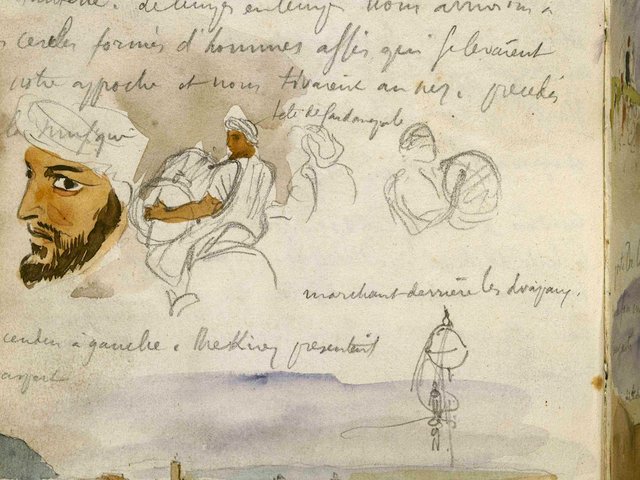 de temps en temps nous arrivons à
cercles formés d'hommes assis qui se levaient
notre approche et nous tiraient au nez. précédés
la musique
tête de Sardanapale
marchant derrière les drapeaux.
à gauche. Meknez présentait
aspect